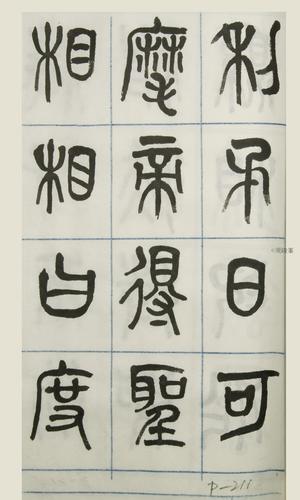 利日可
摩帝得聖
相相白度
P-211